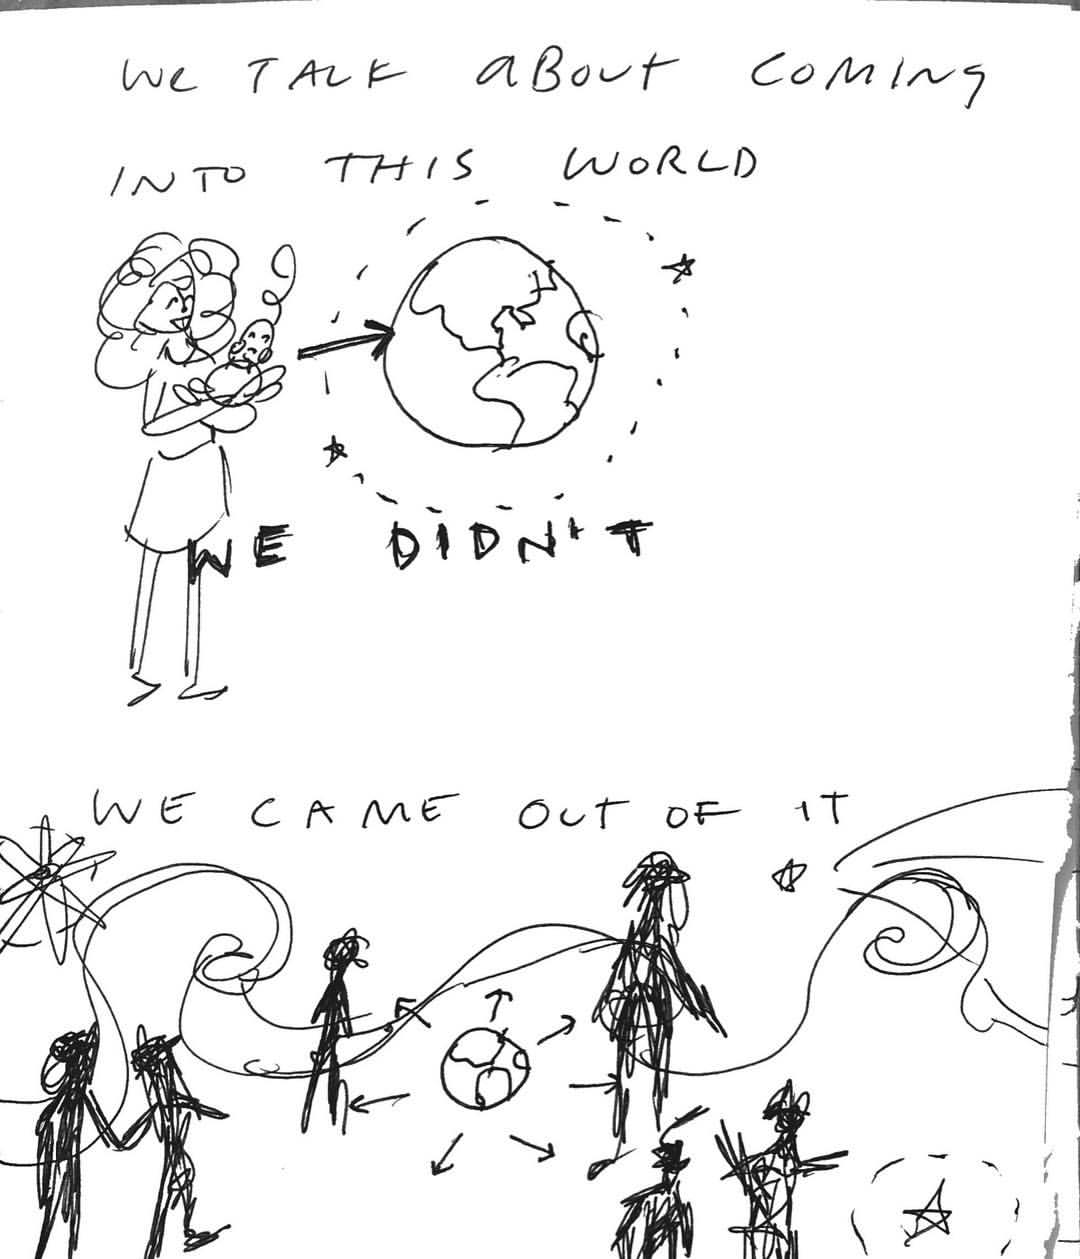 WE TALK ABOUT COMING
INTO THIS WORLD
WE DIDN'T
WE CAME OUT OF IT